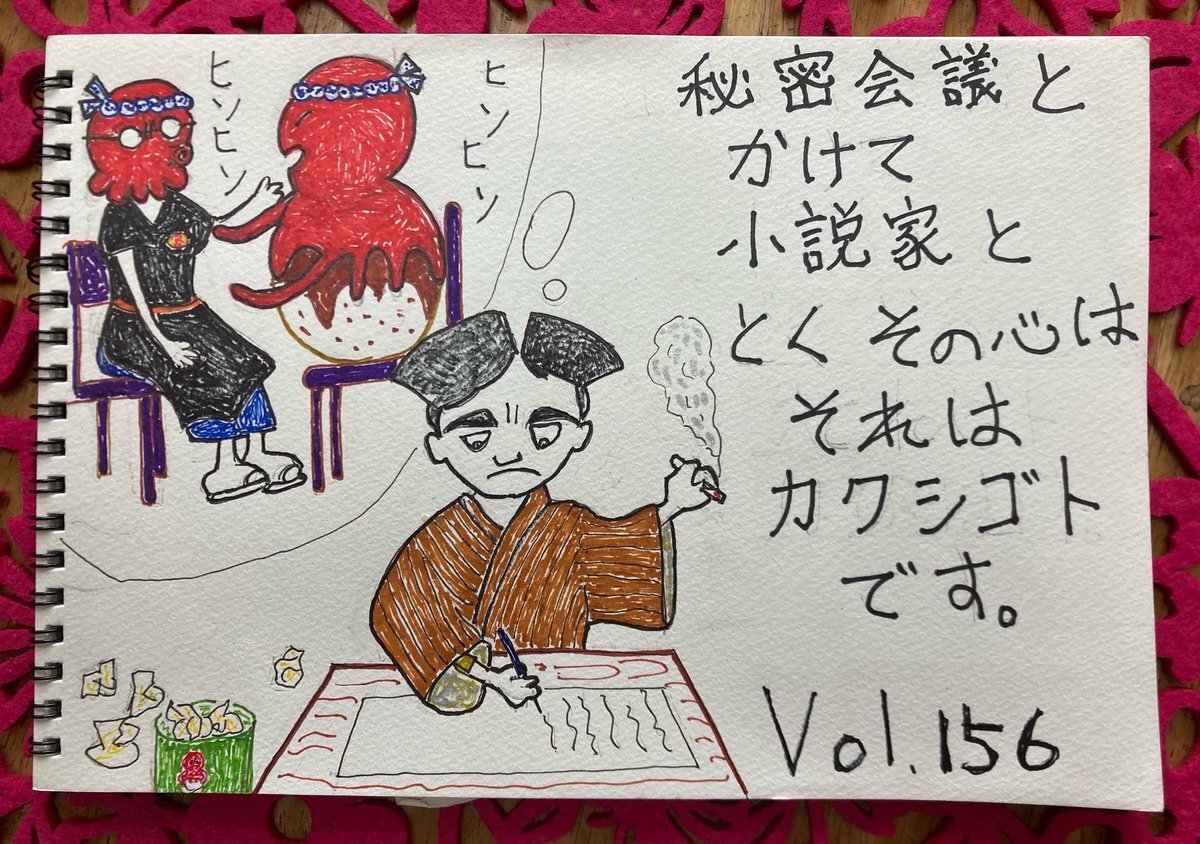 秘密会議と
かけて
小説家と
とくその心は
それは
カクシゴト
です。
Vol.156
ヒソヒソ
ヒソヒソ